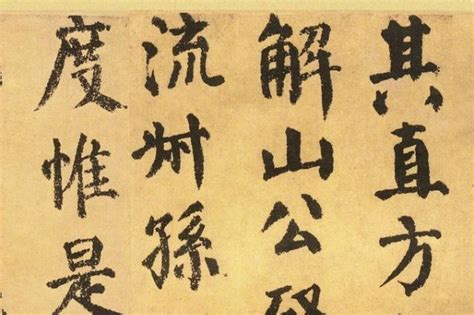 其直方
解山公
流叔孫
度惟是